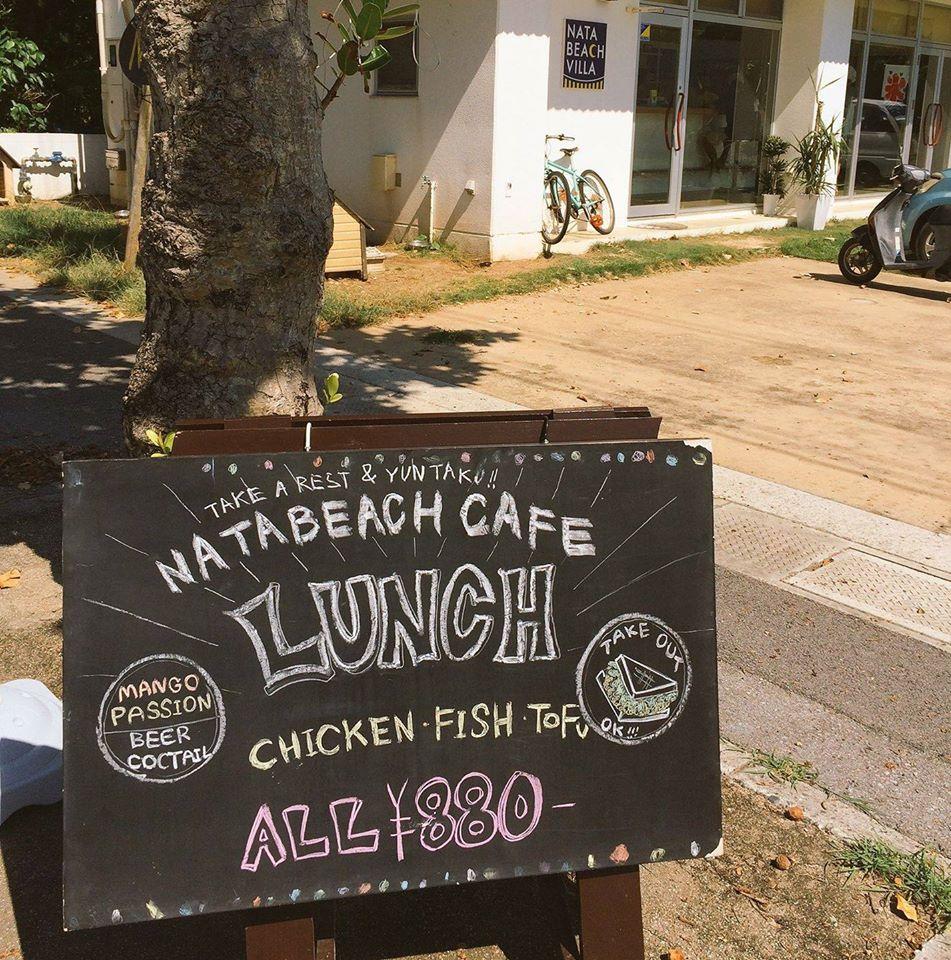 NATA
BEACH
VILLA
TAKE A REST & YUNTAKU!!
NATABEACH CAFE
LUNCH
MANGO
PASSION
BEER
COCTAIL
TAKE OUT
OK!!!
CHICKEN・FISH・TOFU
ALL ¥880-